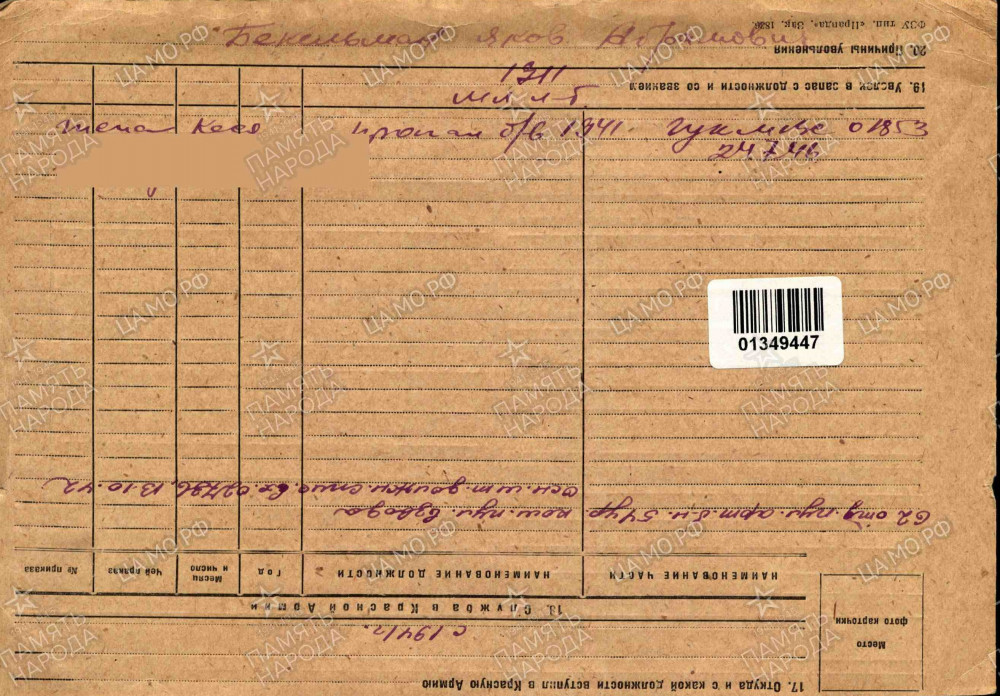 ФЗУ тип. «Правда», Зак. 1880.
20. Причины увольнения
Бекельман Яков Абрамович
19. Уволен в запас с должности и со званием
1911
мл. л-т.
жена Кеся пропал б/в 1941. гук мвс 01853
24.7.46
01349447
62 отд. пул. арт. б-н. 54 ур ком. пул. взвода
13.10.42
НАИМЕНОВАНИЕ ЧАСТИ НАИМЕНОВАНИЕ ДОЛЖНОСТИ Год Месяц и число Чей приказ № приказа
18. Служба в Красной Армии
с 1941 г.
Место
фото карточки
17. Откуда и с какой должности вступил в Красную Армию
ЦАМО.РФ
ПАМЯТЬ
НАРОДА